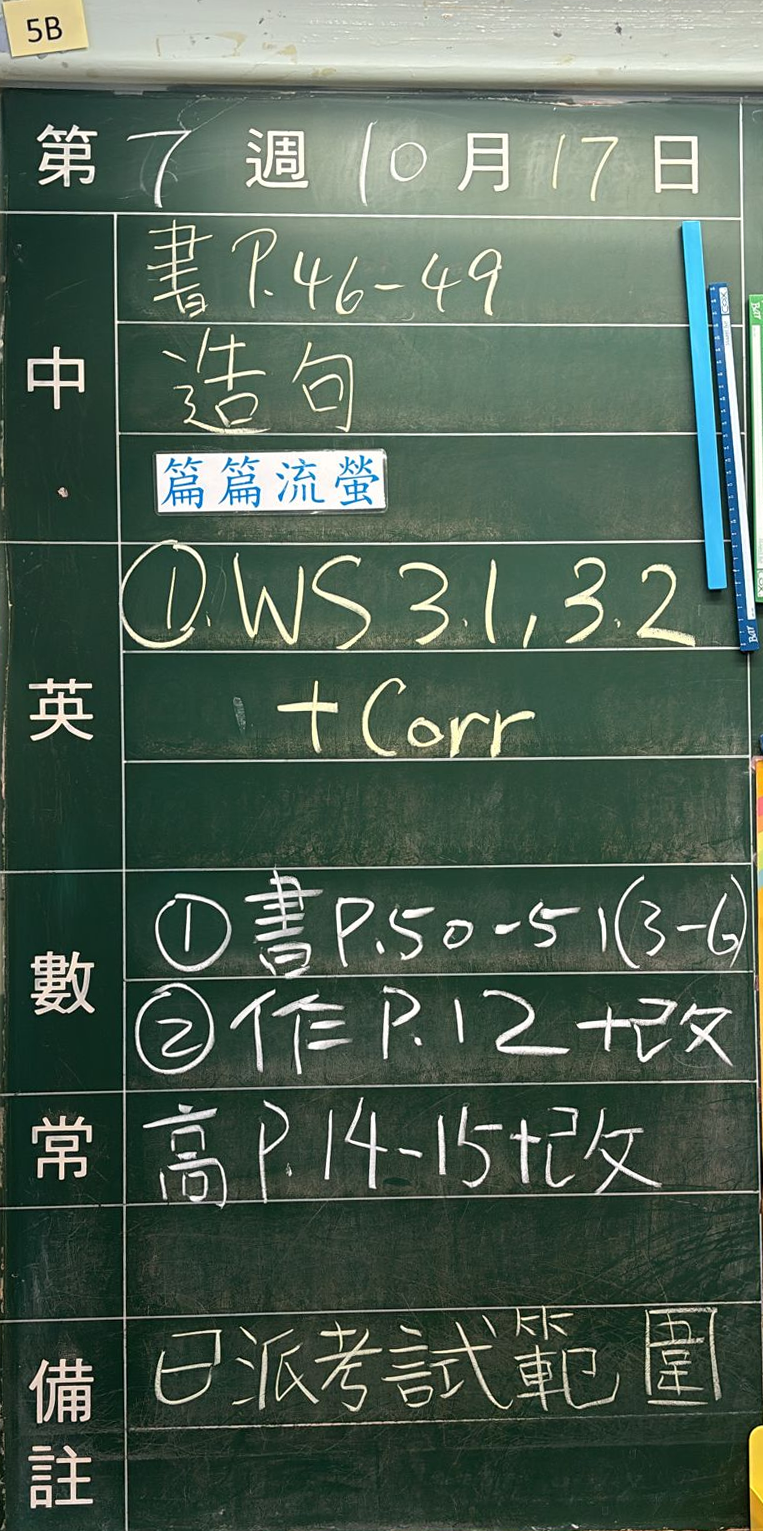 5B
第 7 週 10 月 17 日
中
書 P.46-49
造句
篇篇流螢
英
①. WS 3.1, 3.2
+ Corr
數
① 書 P.50-51(3-6)
② 作 P.12 +改
常
高 P.14-15+改
備註
已派考試範圍